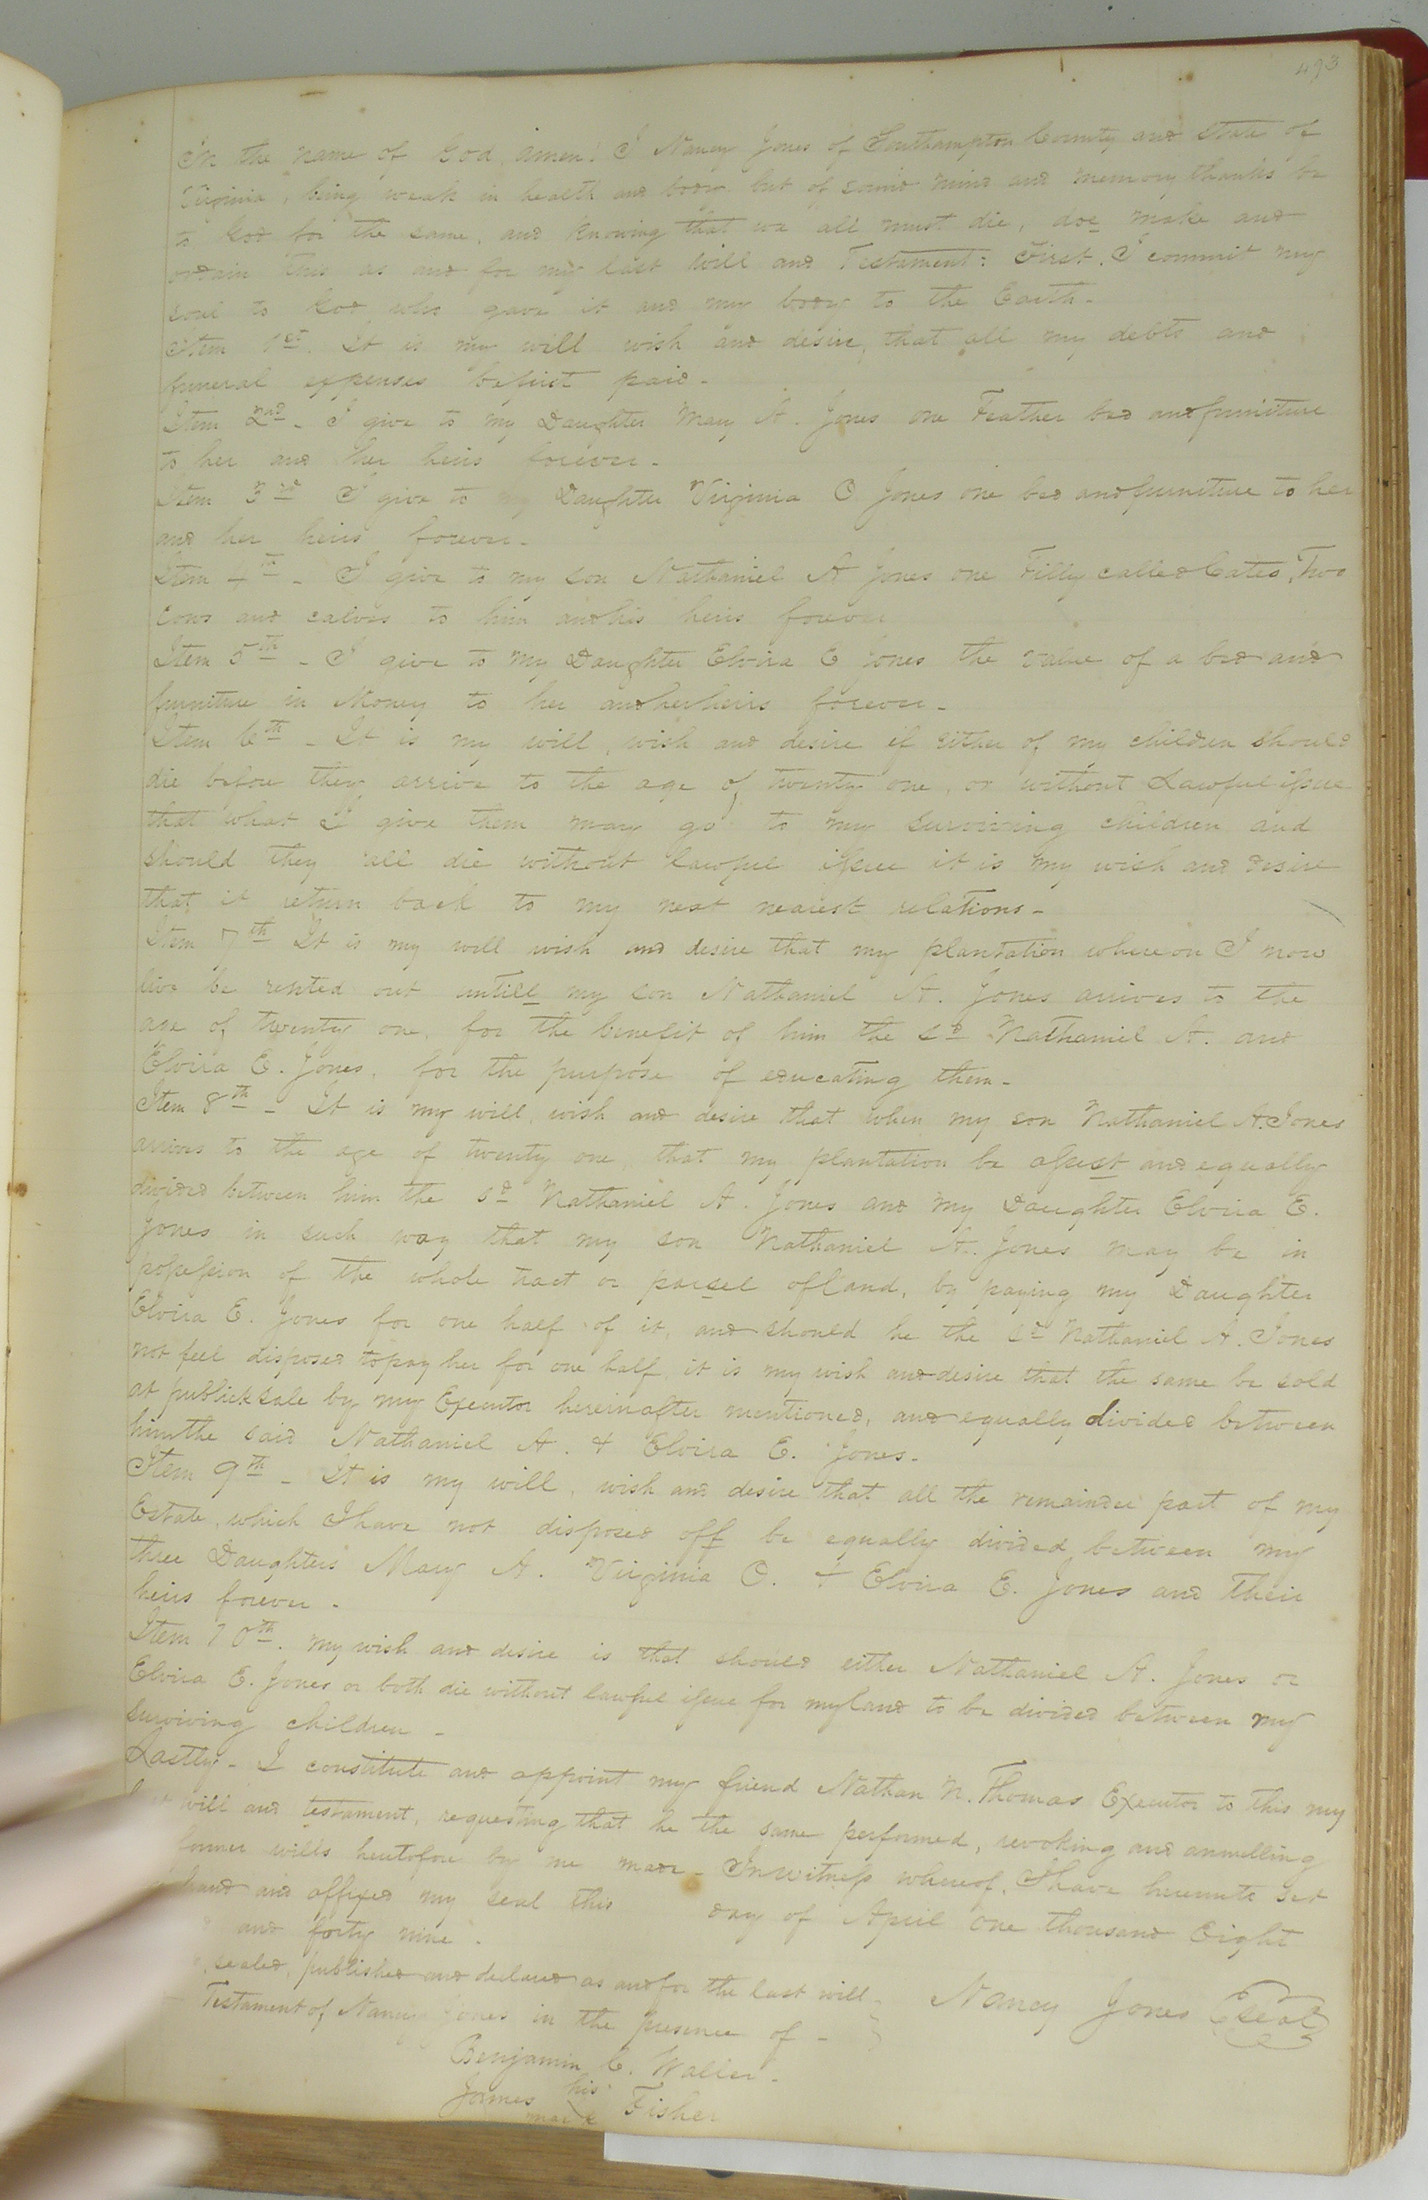 493
In the name of God, amen! I Nancy Jones of Southampton County and State of
Virginia, being weak in health and body but of sound mind and memory thanks be
to God for the same, and knowing that we all must die, doe make and
ordain this as and for my last will and Testament: First, I commit my
soul to God who gave it and my body to the Earth -
Item 1st. It is my will wish and desire, that all my debts and
funeral expenses be first paid -
Item 2nd - I give to my Daughter Mary A. Jones one Feather bed and furniture
to her and her heirs forever -
Item 3rd I give to my Daughter Virginia O Jones one bed and furniture to her
and her heirs forever -
Item 4th - I give to my son Nathaniel A Jones one Filly called Cates, Two
Cows and calves to him and his heirs forever
Item 5th - I give to my Daughter Elvira E Jones the value of a bed and
furniture in Money to her and her heirs forever -
Item 6th - It is my will, wish and desire if either of my children should
die before they arrive to the age of twenty one, or without Lawful issue
that what I give them may go to my surviving children and
should they all die without Lawful issue it is my wish and desire
that it return back to my next nearest relations -
Item 7th It is my will wish and desire that my plantation whereon I now
live be rented out untill my son Nathaniel A. Jones arrives to the
age of twenty one, for the benefit of him the sd Nathaniel A. and
Elvira E. Jones, for the purpose of educating them -
Item 8th - It is my will, wish and desire that when my son Nathaniel A. Jones
arrives to the age of twenty one, that my plantation be assest and equally
divided between him the sd Nathaniel A. Jones and my Daughter Elvira E.
Jones in such way that my son Nathaniel A. Jones may be in
possession of the whole tract or parsel of land, by paying my Daughter
Elvira E. Jones for one half of it, and should he the sd Nathaniel A. Jones
not feel disposed to pay her for one half, it is my wish and desire that the same be sold
at publick sale by my Executor hereinafter mentioned, and equally divided between
him the said Nathaniel A. & Elvira E. Jones -
Item 9th - It is my will, wish and desire that all the remainder part of my
Estate, which I have not disposed off be equally divided between my
three Daughters Mary A. Virginia O. & Elvira E. Jones and their
heirs forever -
Item 10th. my wish and desire is that should either Nathaniel A. Jones or
Elvira E. Jones or both die without lawful issue for my land to be divided between my
surviving children -
Lastly - I constitute and appoint my friend Nathan N. Thomas Executor to this my
will and testament, requesting that he the same performed, revoking and annulling
former wills heretofore by me made - In witness whereof, I have hereunto set
hand and affixed my seal this day of April one thousand Eight
and forty nine -
sealed, published and declared as and for the last will
Testament of Nancy Jones in the presence of -
Nancy Jones Seal
Benjamin C. Waller -
his
James Fisher
mark